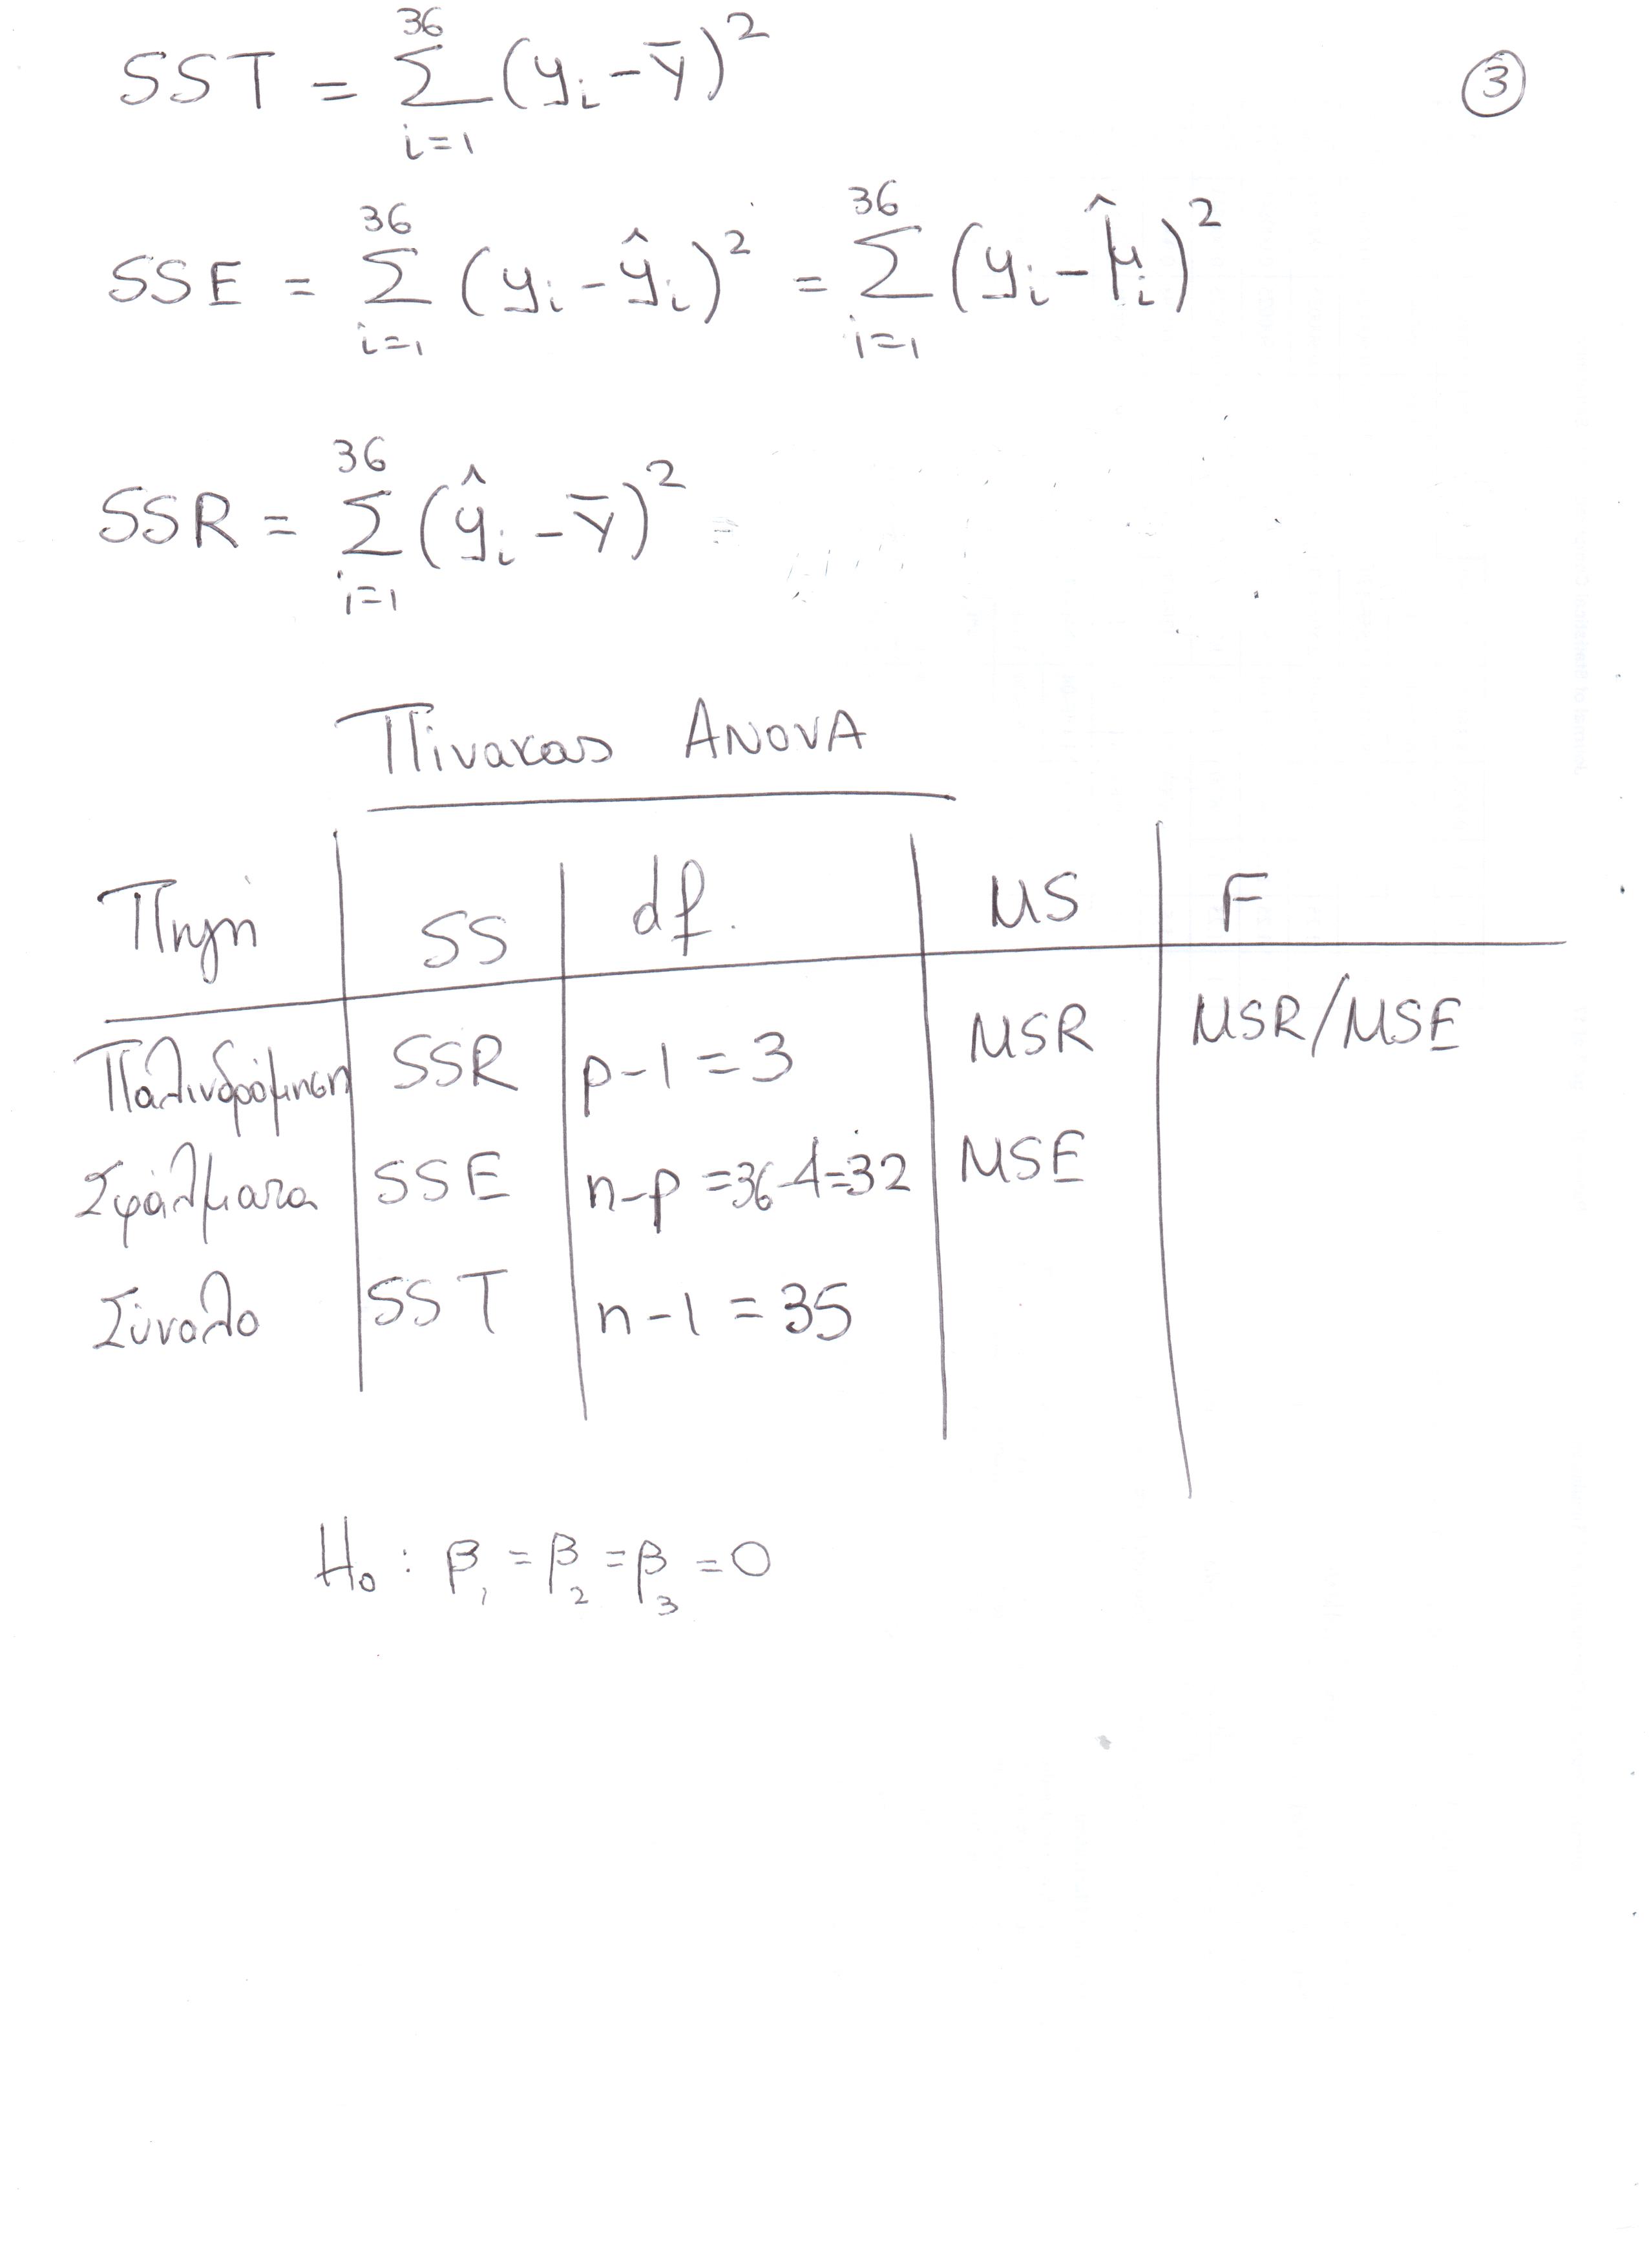 SST = Σ_{i=1}^{36} (y_i - ȳ)²
③
SSE = Σ_{i=1}^{36} (y_i - ŷ_i)² = Σ_{i=1}^{36} (y_i - μ̂_i)²
SSR = Σ_{i=1}^{36} (ŷ_i - ȳ)² =
Πίνακας ANOVA
Πηγή SS df. MS F
Παλινδρόμηση SSR p-1=3 MSR MSR/MSE
Σφάλματα SSE n-p=36-4=32 MSE
Σύνολο SST n-1=35
H₀: β₁=β₂=β₃=0